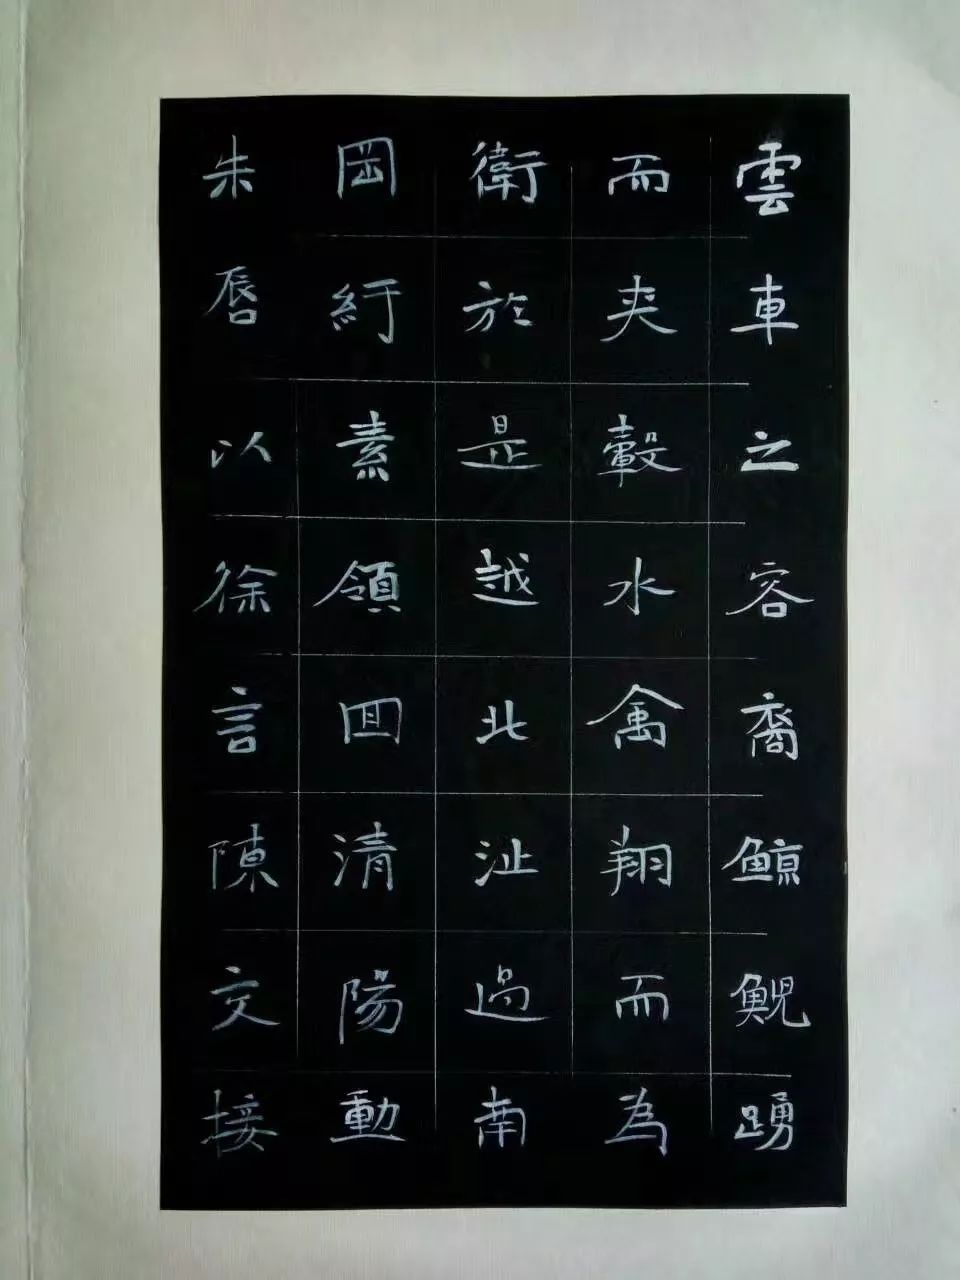 雲車之容裔鯨鯢踴
而夹轂水禽翔而為
衛於是越北沚過南
岡紆素領回清陽動
朱唇以徐言陳交接